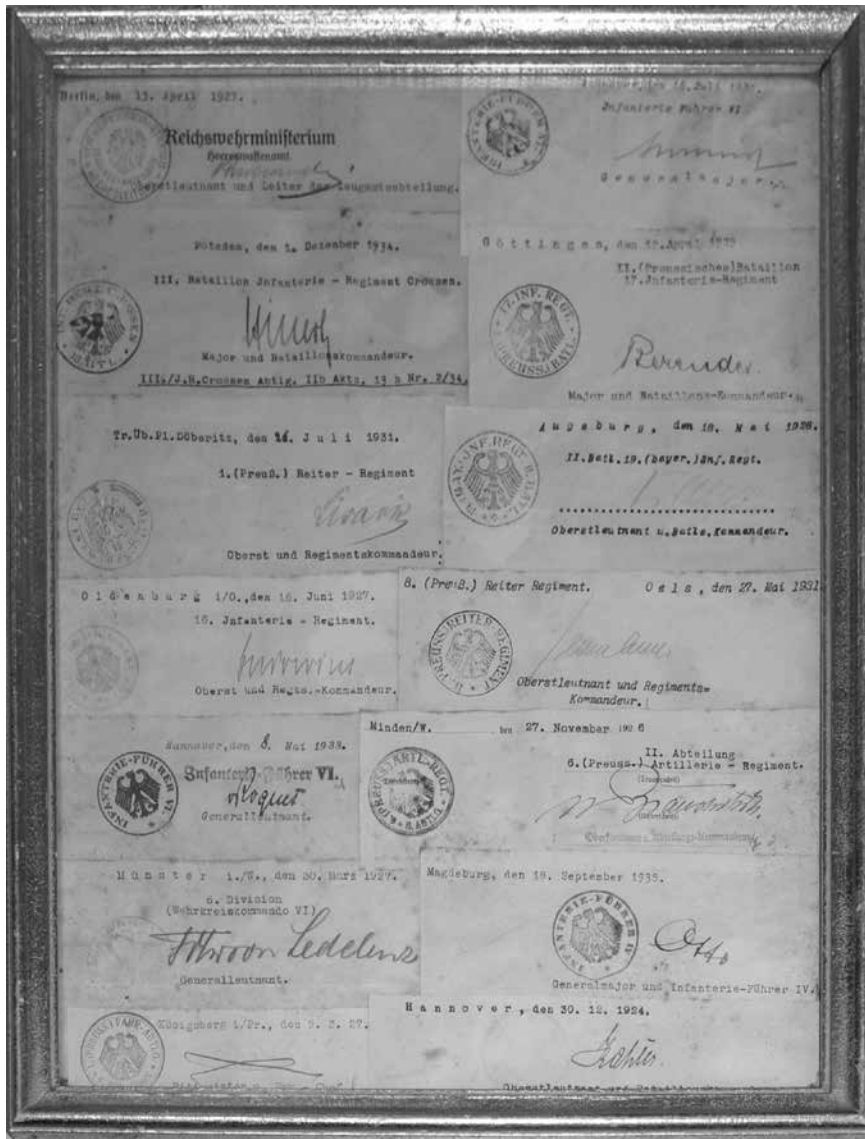 Berlin, den 13. April 1927.
Reichswehrministerium
Heereswaffenamt
Oberstleutnant und Leiter der Zeugamtsabteilung.
Juli
Infanterie Führer VI
INFANTERIE-FÜHRER VI.
Generalmajor.
Potsdam, den 1. Dezember 1934.
III. Bataillon Infanterie - Regiment Crossen.
Major und Bataillonskommandeur.
III./J.R.Crossen Abtlg. IIb Akts. 13 h Nr. 2/34.
Göttingen, den
II.(Preussisches)Bataillon
17.Jnfanterie-Regiment
17. INF. REGT.
(PREUSS.) BATL.
Major und Bataillons-Kommandeur.
Tr.Üb.Pl.Döberitz, den 16. Juli 1931.
1.(Preuß.) Reiter - Regiment
Oberst und Regimentskommandeur.
Augsburg, den 18. Mai 1926.
II.Batl.19.(bayer.)Inf.Regt.
19. (BAY.) INF. REGT. II. BATL.
Oberstleutnant u.Batls.Kommandeur.
Oldenburg i/O.,den 16. Juni 1927.
16. Jnfanterie - Regiment.
Oberst und Regts.-Kommandeur.
8. (Preuß.) Reiter Regiment. Oels, den 27. Mai 1931
8. (PREUSS.) REITER-REGIMENT
Oberstleutnant und Regiments=
Kommandeur.
Hannover,den 8. Mai 1933.
Infanterie-Führer VI.
INFANTERIE-FÜHRER VI.
Generalleutnant.
Minden/W. den 27. November 1926
II. Abteilung
6.(Preuss.) Artillerie - Regiment.
6. (PREUSS.) ARTL.-REGT.
II. ABTLG.
Münster i./W., den 30. März 1927.
6. Division
(Wehrkreiskommando VI)
Generalleutnant.
Magdeburg, den 18. September 1935.
INFANTERIE-FÜHRER IV
Otto
Generalmajor und Infanterie-Führer IV.
Königsberg i/Pr., den
Hannover, den 30. 12. 1924.
Oberstleutnant und